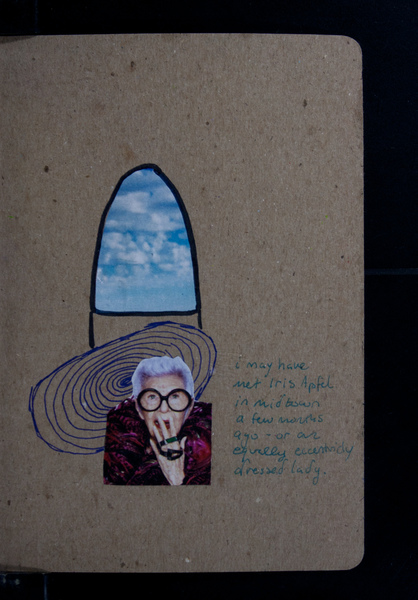 i may have
met Iris Apfel
in midtown
a few months
ago - or an
equally eccentricly
dressed lady.